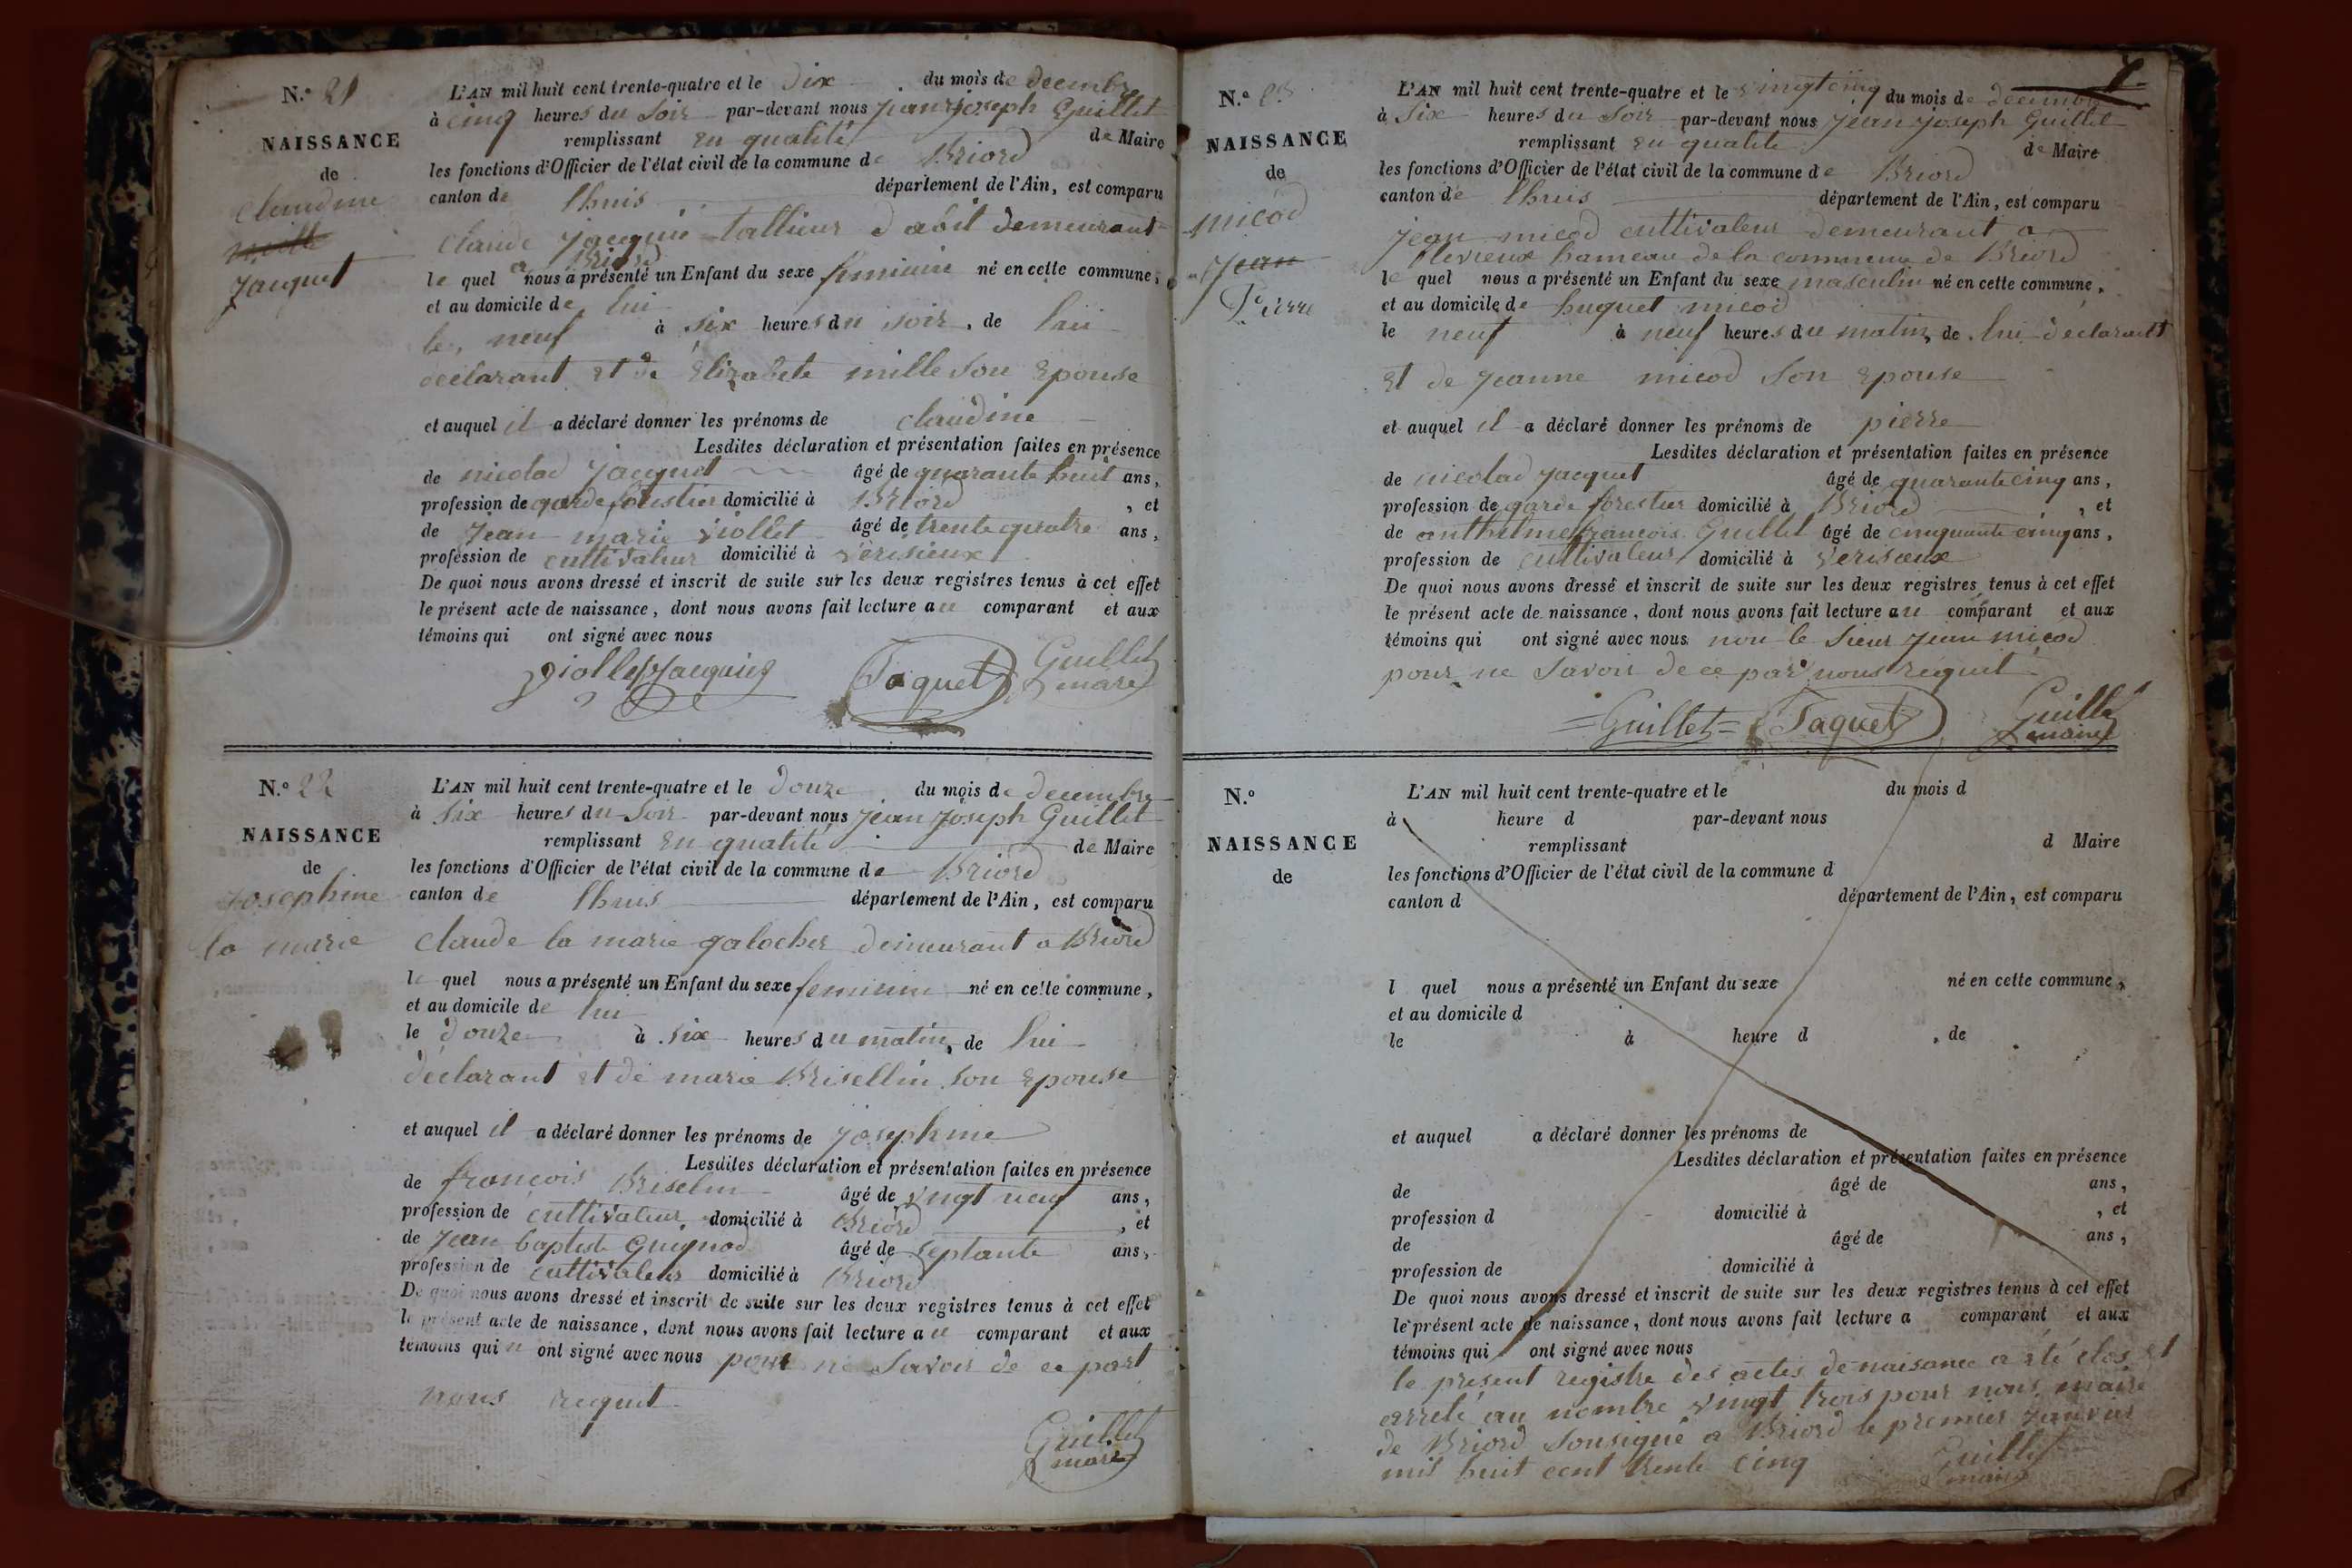 N.º 21
NAISSANCE
de
claudine
mille
Jacquet
L'AN mil huit cent trente-quatre et le dix du mois de decembre
à cinq heures du soir par-devant nous jean joseph Guillet
remplissant en qualité de Maire
les fonctions d'Officier de l'état civil de la commune de Briord
canton de lhuis département de l'Ain, est comparu
claude jacquie tallieur d abit demeurant
a Briord
le quel nous a présenté un Enfant du sexe feminine né en cette commune,
et au domicile de lui
le neuf à six heures du soir, de lui
declarant et de Elizabete mille son Epouse
et auquel il a déclaré donner les prénoms de claudine
Lesdites déclaration et présentation faites en présence
de nicolad jacquet âgé de quarante huit ans,
profession de garde forestier domicilié à Briord, et
de jean marie viollet âgé de trente quatre ans,
profession de cultivateur domicilié à verisieux
De quoi nous avons dressé et inscrit de suite sur les deux registres tenus à cet effet
le présent acte de naissance, dont nous avons fait lecture au comparant et aux
témoins qui ont signé avec nous
Viollet Jacquier Jaquet Guillet
maire
N.º 22
NAISSANCE
de
Josephine
la marie
L'AN mil huit cent trente-quatre et le douze du mois de decembre
à six heures du soir par-devant nous jean joseph Guillet
remplissant en qualité de Maire
les fonctions d'Officier de l'état civil de la commune de Briord
canton de lhuis département de l'Ain, est comparu
claude la marie galocher demeurant a Briord
le quel nous a présenté un Enfant du sexe feminine né en cette commune,
et au domicile de lui
le douze à six heures du matin, de lui
déclarant et de marie Brisellin son Epouse
et auquel il a déclaré donner les prénoms de josephine
Lesdites déclaration et présentation faites en présence
de françois Briselin âgé de vingt neuf ans,
profession de cultivateur domicilié à Briord, et
de jean baptiste Guignod âgé de septante ans,
profession de cultivateur domicilié à Briord
De quoi nous avons dressé et inscrit de suite sur les deux registres tenus à cet effet
le présent acte de naissance, dont nous avons fait lecture au comparant et aux
témoins qui n ont signé avec nous pour ne savoir de ce part
nous requit
Guillet
maire
7
N.º 23
NAISSANCE
de
micod
Jean
Pierre
L'AN mil huit cent trente-quatre et le vingt cinq du mois de decembre
à six heures du soir par-devant nous jean joseph Guillet
remplissant en qualité de Maire
les fonctions d'Officier de l'état civil de la commune de Briord
canton de lhuis département de l'Ain, est comparu
jean micod cultivateur demeurant a
flevieux hameau de la commune de Briord
le quel nous a présenté un Enfant du sexe masculin né en cette commune,
et au domicile de huguet micod
le neuf à neuf heures du matin, de lui déclarant
et de jeanne micod son epouse
et auquel il a déclaré donner les prénoms de pierre
Lesdites déclaration et présentation faites en présence
de nicolad jacquet âgé de quarante cinq ans,
profession de garde forestier domicilié à Briord, et
de anthelme francois Guillet âgé de cinquante cinq ans,
profession de cultivateur domicilié à verisieux
De quoi nous avons dressé et inscrit de suite sur les deux registres tenus à cet effet
le présent acte de naissance, dont nous avons fait lecture au comparant et aux
témoins qui ont signé avec nous non le sieur jean micod
pour ne savoir de ce par nous requit
Guillet Jaquet Guillet
maire
N.º
NAISSANCE
de
L'AN mil huit cent trente-quatre et le du mois d
à heure d par-devant nous
remplissant d Maire
les fonctions d'Officier de l'état civil de la commune d
canton d département de l'Ain, est comparu
l quel nous a présenté un Enfant du sexe né en cette commune,
et au domicile d
le à heure d, de
et auquel a déclaré donner les prénoms de
Lesdites déclaration et présentation faites en présence
de âgé de ans,
profession d domicilié à, et
de âgé de ans,
profession de domicilié à
De quoi nous avons dressé et inscrit de suite sur les deux registres tenus à cet effet
le présent acte de naissance, dont nous avons fait lecture a comparant et aux
témoins qui ont signé avec nous
le present registre des actes de naisance a été clos et
arrelé au nombre vingt trois pour nous maire
de Briord sousigné a Briord le premier janvier
mil huit cent trente cinq Guillet
maire